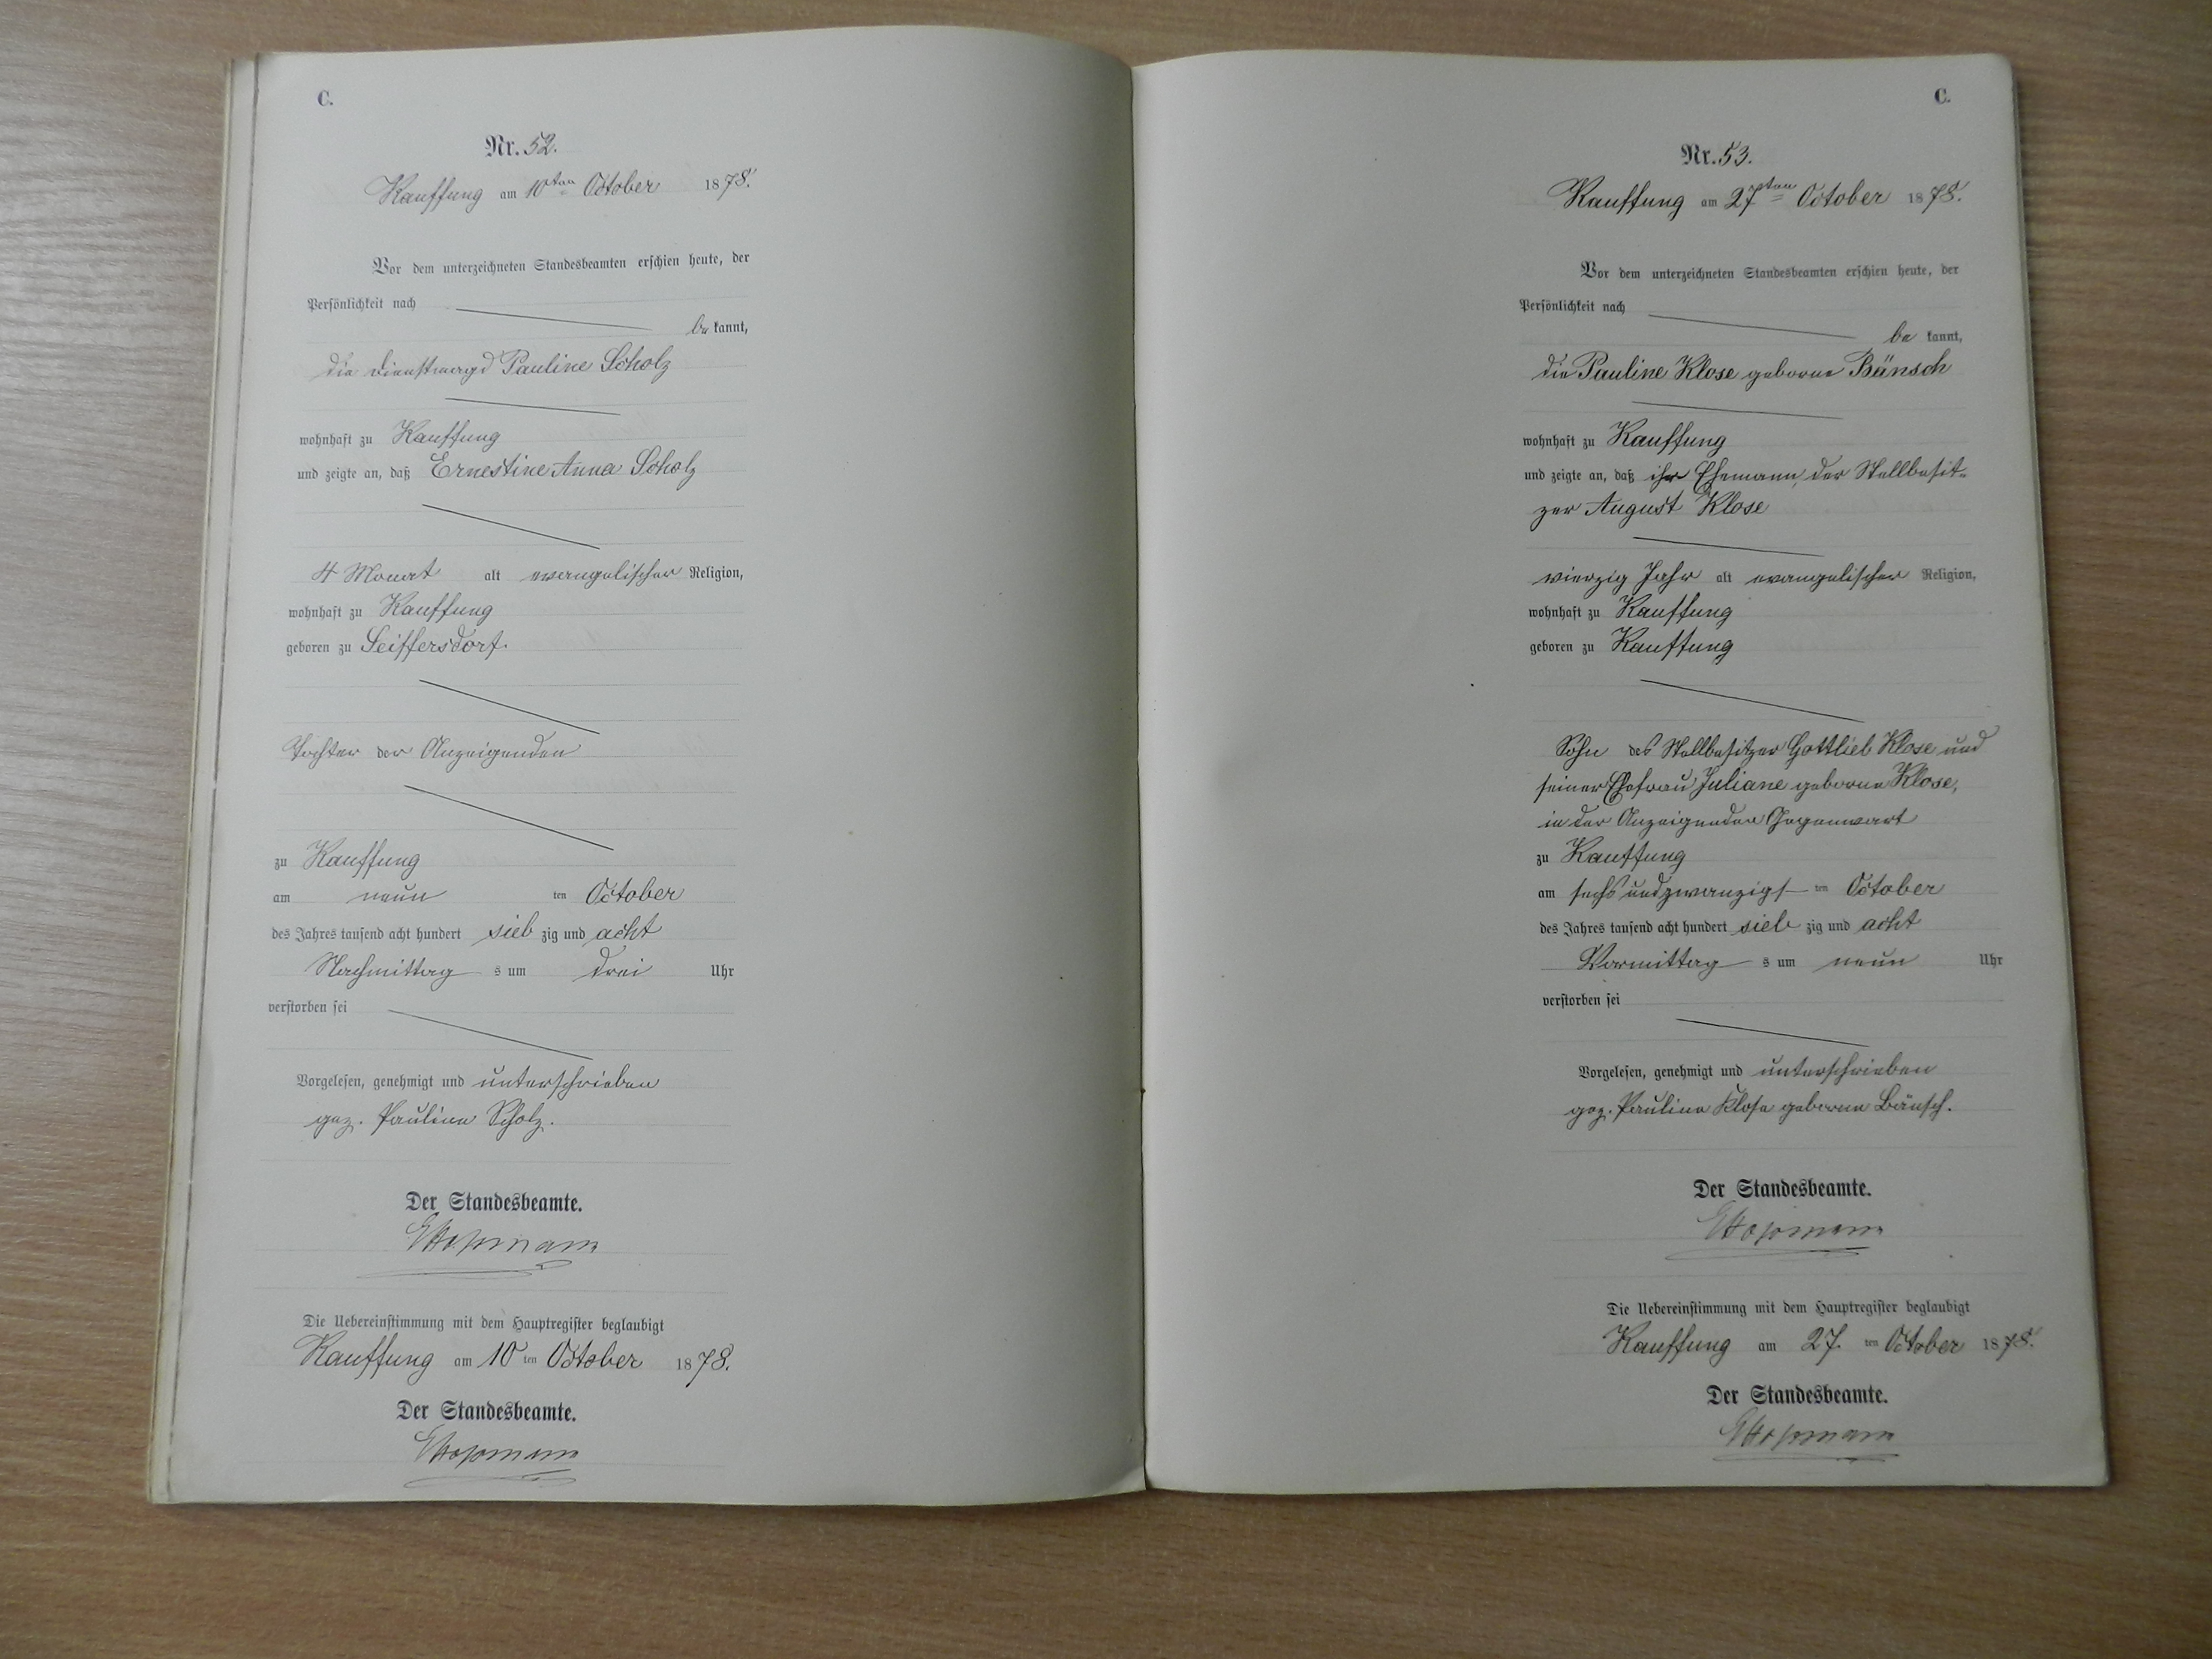 C.
Nr. 52.
Kauffung am 10ten October 1878.
Vor dem unterzeichneten Standesbeamten erschien heute, der
Persönlichkeit nach
be kannt,
die Dienstmagd Pauline Scholz
wohnhaft zu Kauffung
und zeigte an, daß Ernestine Anna Scholz
4 Monat alt evangelischer Religion,
wohnhaft zu Kauffung
geboren zu Seiffersdorf.
Tochter der Anzeigenden
zu Kauffung
am neun ten October
des Jahres tausend acht hundert sieb zig und acht
Nachmittag s um drei Uhr
verstorben sei
Vorgelesen, genehmigt und unterschrieben
gez. Pauline Scholz.
Der Standesbeamte.
Die Uebereinstimmung mit dem Hauptregister beglaubigt
Kauffung am 10 ten October 1878.
Der Standesbeamte.
C.
Nr. 53.
Kauffung am 27ten October 1878.
Vor dem unterzeichneten Standesbeamten erschien heute, der
Persönlichkeit nach
be kannt,
die Pauline Klose geborne Bänsch
wohnhaft zu Kauffung
und zeigte an, daß ihr Ehemann, der Stellbesit-
zer August Klose
vierzig Jahr alt evangelischer Religion,
wohnhaft zu Kauffung
geboren zu Kauffung
Sohn des Stellbesitzer Gottlieb Klose und
seiner Ehefrau Juliane geborne Klose,
in der Anzeigenden Gegenwart
zu Kauffung
am sechsundzwanzigs ten October
des Jahres tausend acht hundert sieb zig und acht
Vormittag s um neun Uhr
verstorben sei
Vorgelesen, genehmigt und unterschrieben
gez. Pauline Klose geborne Bänsch.
Der Standesbeamte.
Die Uebereinstimmung mit dem Hauptregister beglaubigt
Kauffung am 27. ten October 1878.
Der Standesbeamte.